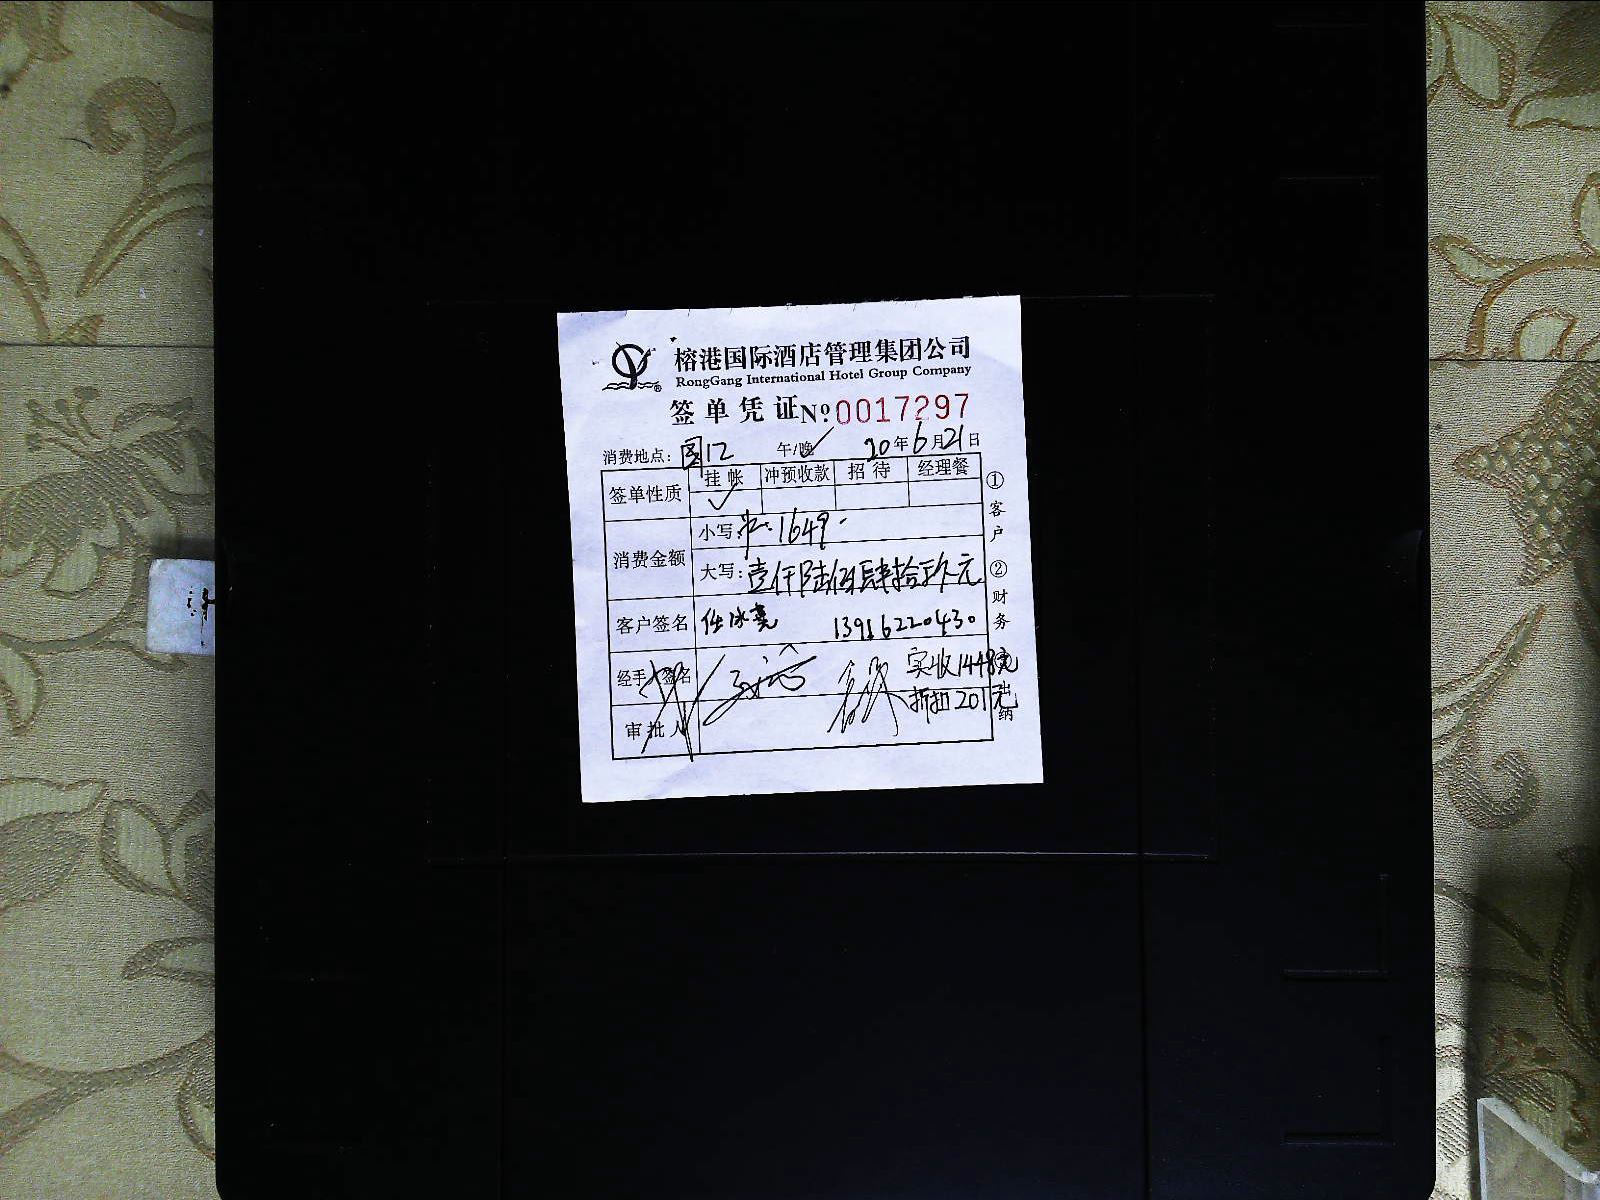 榕港国际酒店管理集团公司
RongGang International Hotel Group Company
签单凭证 № 0017297
消费地点: 国12 午/晚✓ 20年6月21日
签单性质 挂帐 冲预收款 招待 经理餐
✓
消费金额 小写: 1649.-
大写: 壹仟陆佰肆拾玖元
客户签名 任冰亮 13916220430
经手人签名 实收1448元
折扣201元
审批人
①客户 ②财务
出纳